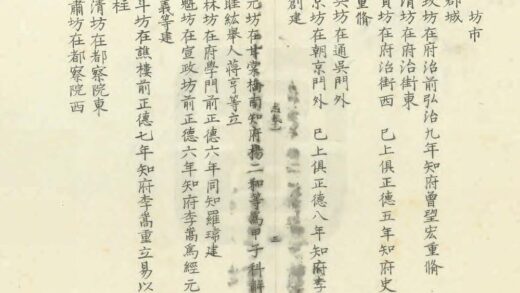 坊市
郡城
坊在府治前弘治九年知府曾望宏重脩
清坊在府治街東
坊在府治街西 巳上俱正德五年知府史
重脩
吳坊在通吳門外
京坊在朝京門外 巳上俱正德八年知府李
創建
二
元坊在甘棠橋南知府楊二和等爲甲子科解
紘舉人蔣亨等立
林坊在府學門前正德六年同知羅瑋建
魁坊在宣政坊前正德六年知府李嵩爲經元
義等建
斗坊在譙樓前正德七年知府李嵩重立易以
桂
清坊在都察院東
肅坊在都察院西